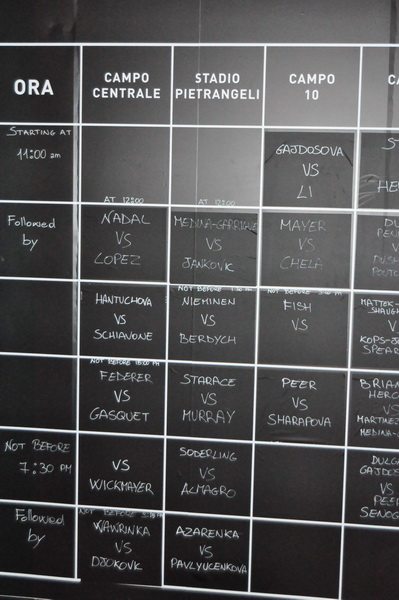 ORA
CAMPO CENTRALE
STADIO PIETRANGELI
CAMPO 10
STARTING AT 11:00 am
GAJDOSOVA
VS
LI
AT 12:00
AT 12:00
Followed by
NADAL
VS
LOPEZ
MEDINA-GARRIGUE
VS
JANKOVIC
MAYER
VS
CHELA
HANTUCHOVA
VS
SCHIAVONE
NOT BEFORE
NIEMINEN
VS
BERDYCH
NOT BEFORE
FISH
VS
MATTEK-
SHAUGH
VS
KOPS-J
SPEAR
NOT BEFORE
FEDERER
VS
GASQUET
STARACE
VS
MURRAY
PEER
VS
SHARAPOVA
BRIAN
HERC
VS
MARTINEZ
MEDINA-
NOT BEFORE
7:30 PM
VS
WICKMAYER
SODERLING
VS
ALMAGRO
DULG
GAJDO
VS
PEER
SENOG
Followed by
NOT BEFORE
WAWRINKA
VS
DJOKOVIC
AZARENKA
VS
PAVLYUCENKOVA